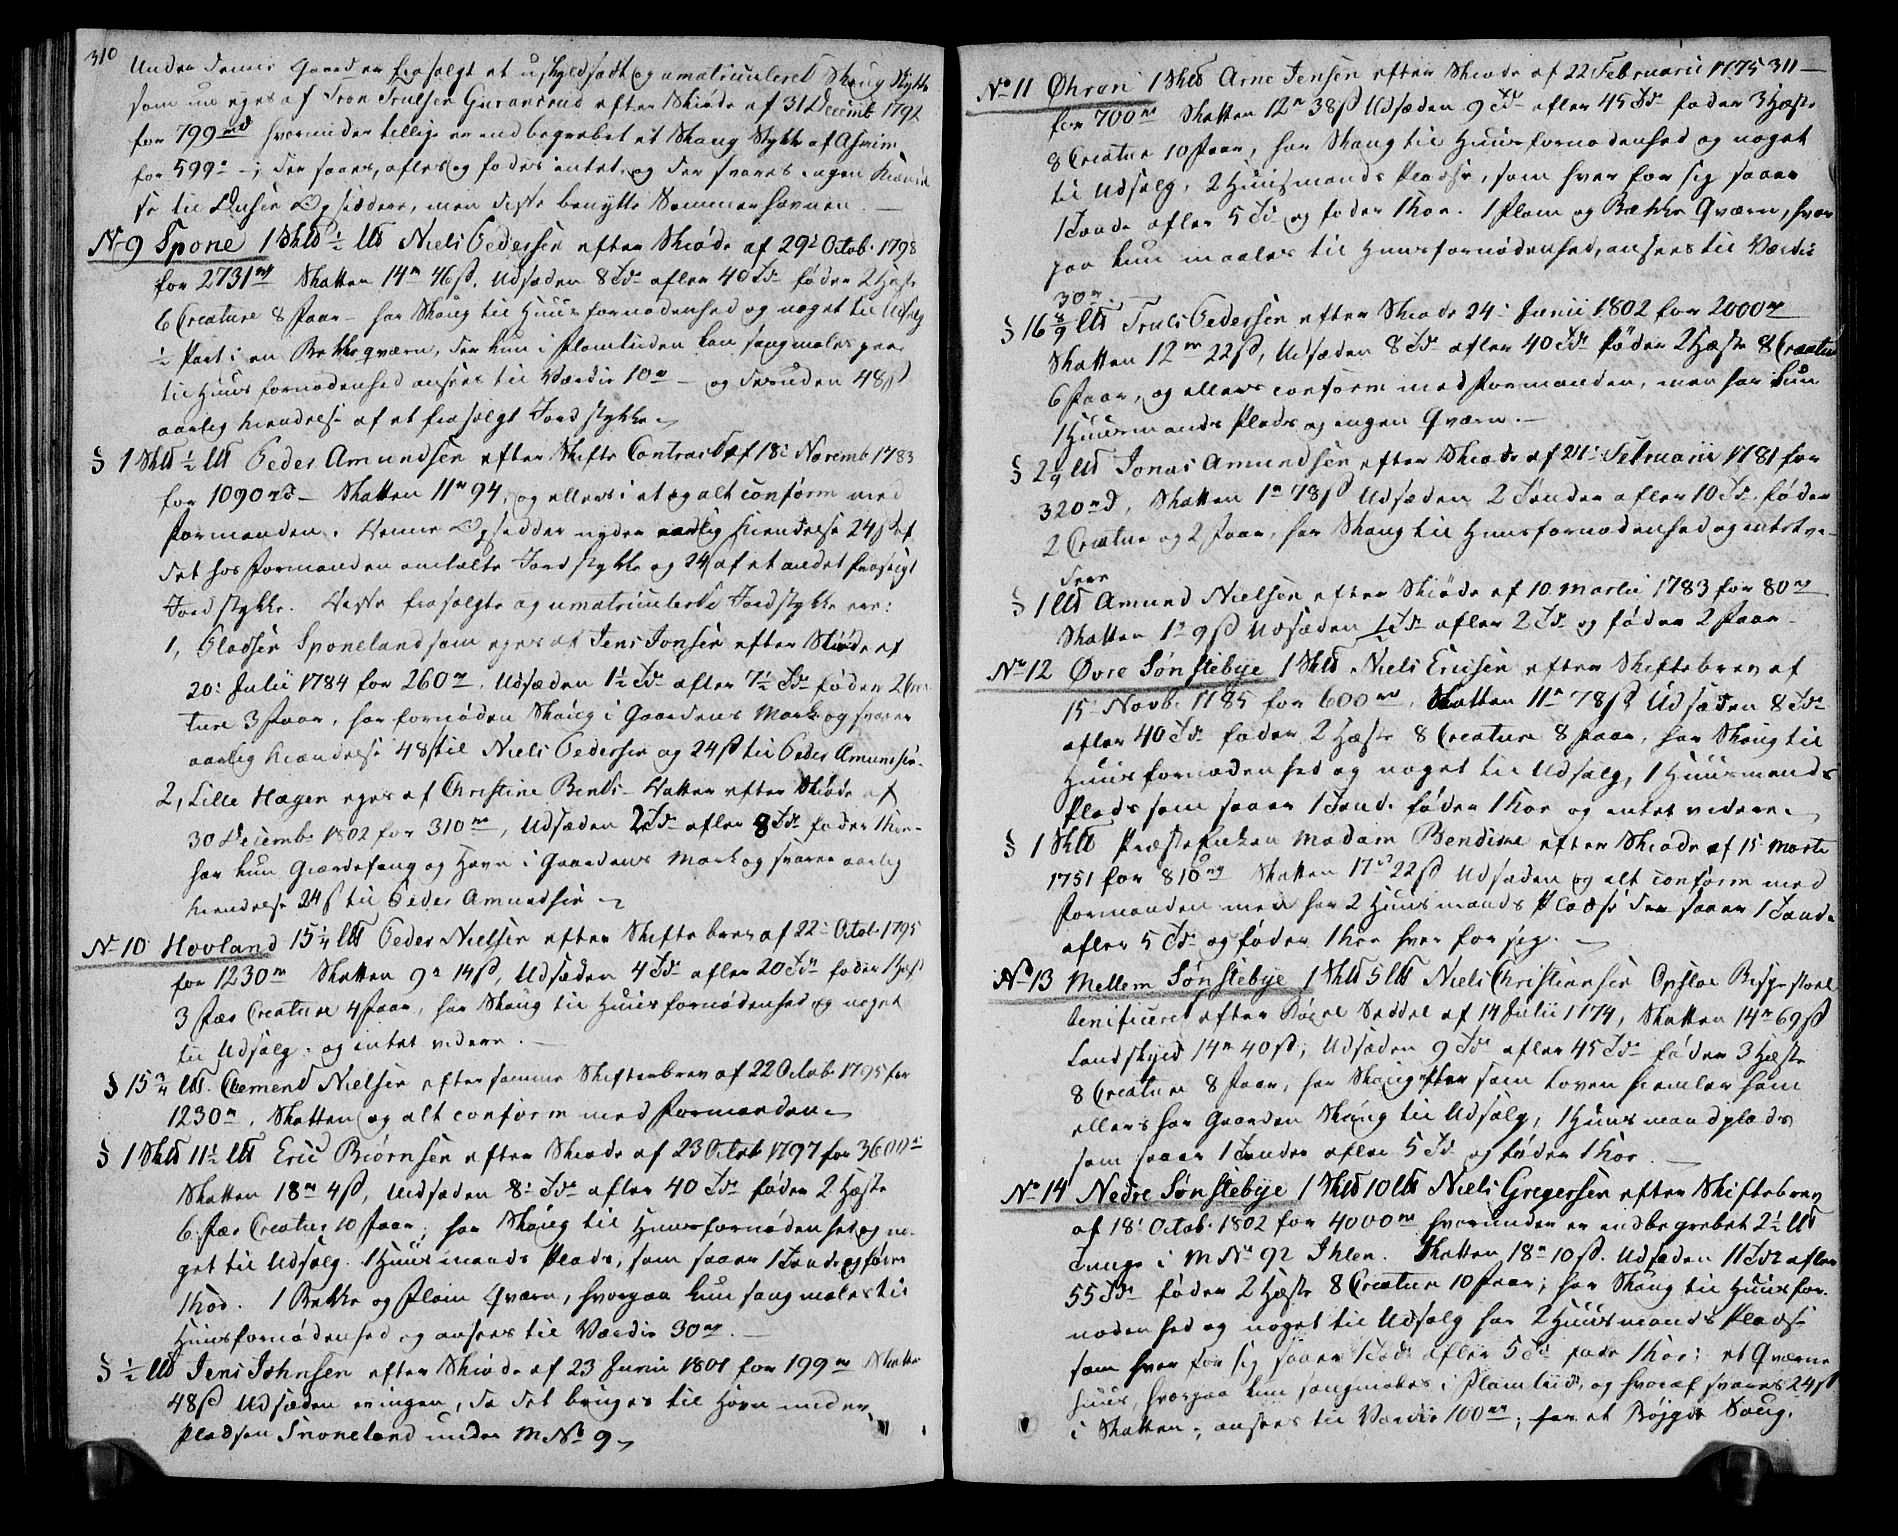 310
Under denne Gaard er frasolgt et uskyldsadt og umatriculeret Skaug Stykke
som nu eges af Tron Trulsen Guranrud efter Skiøde af 31 Decemb 1792
for 799 rd hvorunder tillige er indbegrebet et Skaug Stykke af Asheim
for 599 –; der saaes, afles og fødes intet, og der svares ingen Kiændel
se til Opsiddere, men disse benytte Sommer havnen.
No 9 Spone 1 Skld ½ lld Niels Pedersen efter Skiøde af 29 Octob. 1798
for 2731 rd Skatten 14 46 ß, Udsæden 8 Tdr afler 40 Tdr føder 2 Heste
6 Creature 8 Faar – har Skaug til Huusfornødenhed og noget til Udsalg
½ Part i en Bekke qværn, der kun i Flomtiden kan males paa
til Huus fornødenhed ansees til Værdie 10 – og desuden 48 ß
aarlig Kiendelse af et frasolgt Jord stykke.
§ 1 Skld ½ lld Peder Amundsen efter Skifte Contract af 18 Novemb 1783
for 1090 rd – Skatten 11 94, og ellers i et og alt conform med
Formanden. Denne Opsidder nyder aarlig Kiendelse 24 ß af
det hos Formanden omtalte Jord stykke og 24 af et andet frasolgt
Jord stykke. Disse frasolgte og umatriculerede Jordstykker ere:
1, Pladsen Sponeland som eges af Jens Jonsen efter Skiøde af
20 Julii 1784 for 260, Udsæden 1½ Tdr afler 7½ Tdr føder 2 Crea
ture 3 Faar, har fornøden Skaug i Gaardens Mark og svarer
aarlig Kiændelse 48 ß til Niels Pedersen og 24 ß til Peder Amundsen.
2, Lille Hagen eges af Christine Bends Datter efter Skiøde af
30 Decemb. 1802 for 310, Udsæden 2 Tdr afler 8 Tdr føder 1 Koe
har kun Giærdefang og Havn i Gaardens Mark og svarer aarlig
Kiendelse 24 ß til Peder Amundsen
No 10 Hovland 15¼ lld Peder Nielsen efter Skifte brev af 22 Octob. 1795
for 1230 Skatten 9 14 ß, Udsæden 4 Tdr afler 20 Tdr føder 1 Hest
3 Creature 4 Faar, har Skaug til Huusfornødenhed og noget
til Udsalg, og intet videre.
§ 15¼ lld. Clemend Nielsen efter samme Skiftebrev af 22 Octob 1795 for
1230, Skatten og alt conform med Formanden
§ 1 Skld 11½ lld Eric Biørnsen efter Skiøde af 23 Octob 1797 for 3600
Skatten 18 4 ß, Udsæden 8 Tdr afler 40 Tdr føder 2 Heste
6 Creatur 10 Faar, har Skaug til Huusfornødenhed og no
get til Udsalg. 1 Huusmands Plads, som saaer 1 Tønde og føder
1 Koe. 1 Bekke og Flom Qværn, hvorpaa kun males til
Huusfornødenhed og ansees til Værdie 30.
§ ½ lld Jens Johnsen efter Skiøde af 23 Junii 1801 for 199 Skatten
48 ß Udsæden er ingen, da det bruges til Havn under
Pladsen Sponeland under M No 9
No 11 Øhrun 1 Skld Arne Jensen efter Skiøde af 22 Februarii 1775 311
for 700 Skatten 12 38 ß Udsæden 9 Tdr afler 45 Tdr føder 3 Heste
8 Creatur 10 Faar, har Skaug til Huusfornødenhed og noget
til Udsalg, 2 Huusmands Pladse, som hver for sig saaer
1 Tønde afler 5 Td og føder 1 Koe. 1 Flom og Bekke Qværn, hvor
paa kun males til Huusfornødenhed, ansees til Værdie
30
§ 16 8/9 lld Truls Pedersen efter Skiøde 24 Junii 1802 for 2000
Skatten 12 22 ß, Udsæden 8 Tdr afler 40 Tdr føder 2 Heste 8 Creatur
6 Faar, og ellers conform med Formanden, men har kun
1 Huusmands Plads og ingen Qværn.
§ 2 lld Jonas Amundsen efter Skiøde af 24 Februarii 1781 for
320 rd, Skatten 1 78 ß Udsæden 2 Tønder afler 10 Td. føder
2 Creatur og 2 Faar, har Skaug til Huusfornødenhed og intet vi-
dere
§ 1 lld Amund Nielsen efter Skiøde af 10 Martii 1783 for 80
Skatten 1 9 ß Udsæden ½ Tdr afler 2 Td og føder 2 Faar
No 12 Øvre Sønstebye 1 Skld Niels Ericsen efter Skiftebrev af
15 Novb. 1785 for 600, Skatten 11 78 ß Udsæden 8 Tdr
afler 40 Tdr føder 2 Heste 8 Creatur 8 Faar, har Skaug til
Huusfornødenhed og noget til Udsalg, 1 Huusmands
Plads som saaer 1 Tønde føder 1 Koe og intet videre
§ 1 Skld Præste Enken Madam Bendixe efter Skiøde af 15 Martii
1751 for 810 Skatten 17 22 ß Udsæden og alt conform med
Formanden men har 2 Huusmands Pladse der saaer 1 Tønde
afler 5 Tdr og føder 1 Koe hver for sig.
No 13 Mellem Sønstebye 1 Skld 5 lld Niels Christiansen Opsloe Bispe stoel
beneficeret efter Bøxel Seddel af 14 Julii 1774, Skatten 14 69 ß
Landskyld 14 40 ß, Udsæden 9 Tdr afler 45 Tdr føder 3 Heste
8 Creatur 8 Faar, har Skaug efter som Loven hiemler ham
ellers har Gaarden Skaug til Udsalg, 1 Huusmandsplads
som saaer 1 Tønde afler 5 Td og føder 1 Koe.
No 14 Nedre Sønstebye 1 Skld 10 lld Niels Gregersen efter Skiftebrev
af 18 Octob. 1802 for 4000 hvorunder er indbegrebet 2½ lld
Tunge i M No 92 Ihlen. Skatten 18 10 ß. Udsæden 11 Tdr afler
55 Tdr føder 2 Heste 8 Creatur 10 Faar; har Skaug til Huusfor-
nødenhed og noget til Udsalg har 2 Huusmands Pladse
som hver for sig saaer 1 Td afler 5 Td føde 1 Koe; et Qværne
huus, hvorpaa kun males i Flomtiid, og hvoraf svares 24 ß
i Skatten, ansees til Værdie 100; for et Bøyder Saug.